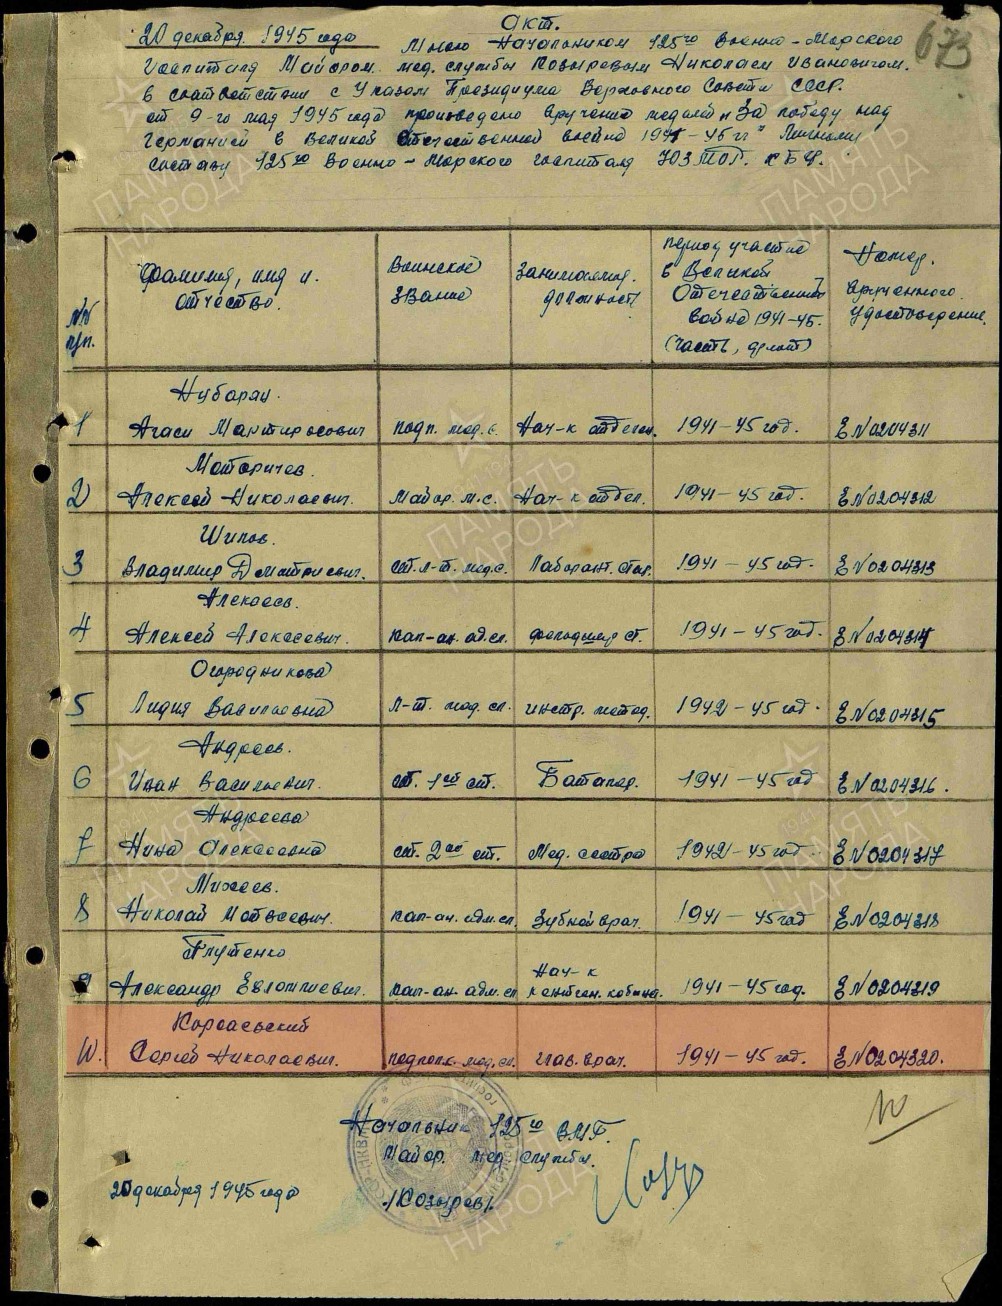 673
Акт.
20 декабря 1945 года Мною Начальником 125го Военно-Морского
Госпиталя Майором мед. службы Козыревым Николаем Ивановичем.
в соответствии с Указом Президиума Верховного Совета СССР.
от 9-го мая 1945 года произведено вручение медалей „За победу над
Германией в Великой Отечественной войне 1941-45 гг" Личному
составу 125го Военно-Морского госпиталя
№№ п/п.
Фамилия, имя и отчество.
Воинское звание
Занимаемая должность
период участия в Великой Отечественной войне 1941-45. (часть, флот)
Номер. врученного удостоверение.
1 Нубарян Агаси Мантирасович подп. мед. с. Нач-к отделен. 1941-45 год. Е№0204311
2 Моторичев. Алексей Николаевич. Майор. м.с. Нач-к отдел. 1941-45 год. Е№0204312
3 Шилов. Владимир Дмитриевич. ст. л-т. мед.с. Лаборант. 1941-45 год. Е№0204313
4 Алексеев. Алексей Алексеевич. кап-ан. ад. сл. фельдшер ст. 1941-45 год. Е№0204314
5 Огородникова Лидия Васильевна л-т. мед. сл. инстр. метод. 1942-45 год. Е№0204315
6 Андреев. Иван Васильевич. ст. 1ой ст. Баталер. 1941-45 год Е№0204316.
7 Андреева Нина Алексеевна ст. 2ой ст. Мед. сестра 1942-45 год. Е№0204317
8 Михеев. Николай Матвеевич. кап-ан. адм. сл. Зубной врач. 1941-45 год Е№0204318
9 Плутенко Александр Евлампиевич. кап-ан. адм. сл. Нач-к рентген. кабине. 1941-45 год. Е№0204319
10. Корсаевский Сергей Николаевич. подполк. мед. сл. глав. врач. 1941-45 год. Е№0204320.
10
Начальник 125го ВМГ.
Майор мед службы.
20 декабря 1945 года /Козырев/.
ПАМЯТЬ НАРОДА